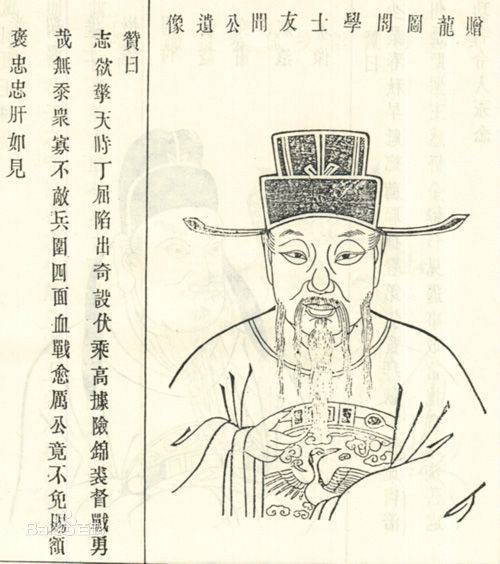 贈龍圖閣學士友聞公遺像
贊曰
志欲擎天時丁屈陷出奇設伏乘高據險錦裘督戰勇
哉無忝衆寡不敵兵圍四面血戰愈厲公竟不免賜額
褒忠忠肝如見